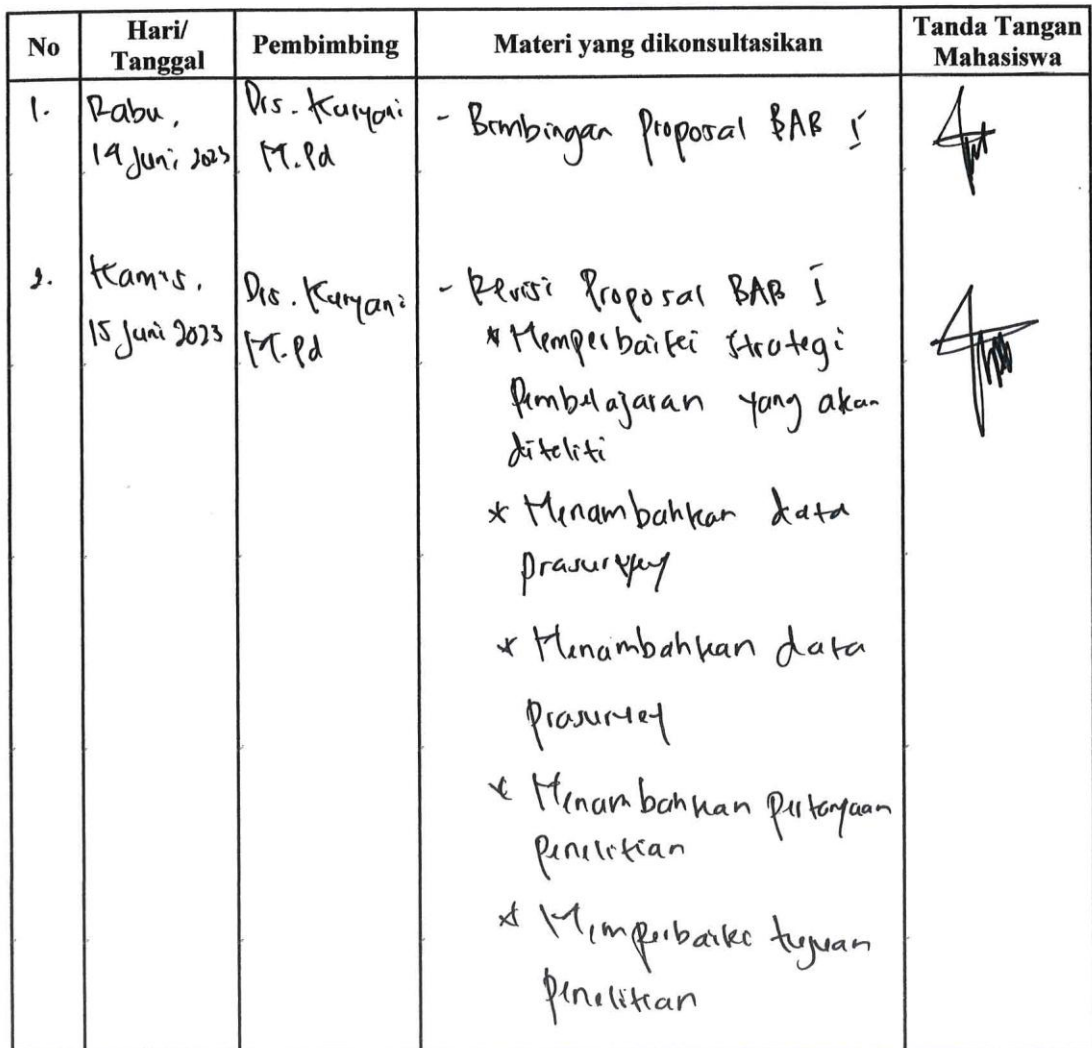 No Hari/ Tanggal Pembimbing Materi yang dikonsultasikan Tanda Tangan Mahasiswa
1. Rabu, Drs. Kuryani - Bimbingan Proposal BAB I
14 Juni 2023 M.Pd
2. Kamis, Drs. Kuryani - Revisi Proposal BAB I
15 Juni 2023 M.Pd * Memperbaiki strategi
Pembelajaran yang akan
diteliti
* Menambahkan data
prasurvey
* Menambahkan data
prasurvey
* Menambahkan pertanyaan
penelitian
* Memperbaiki tujuan
penelitian